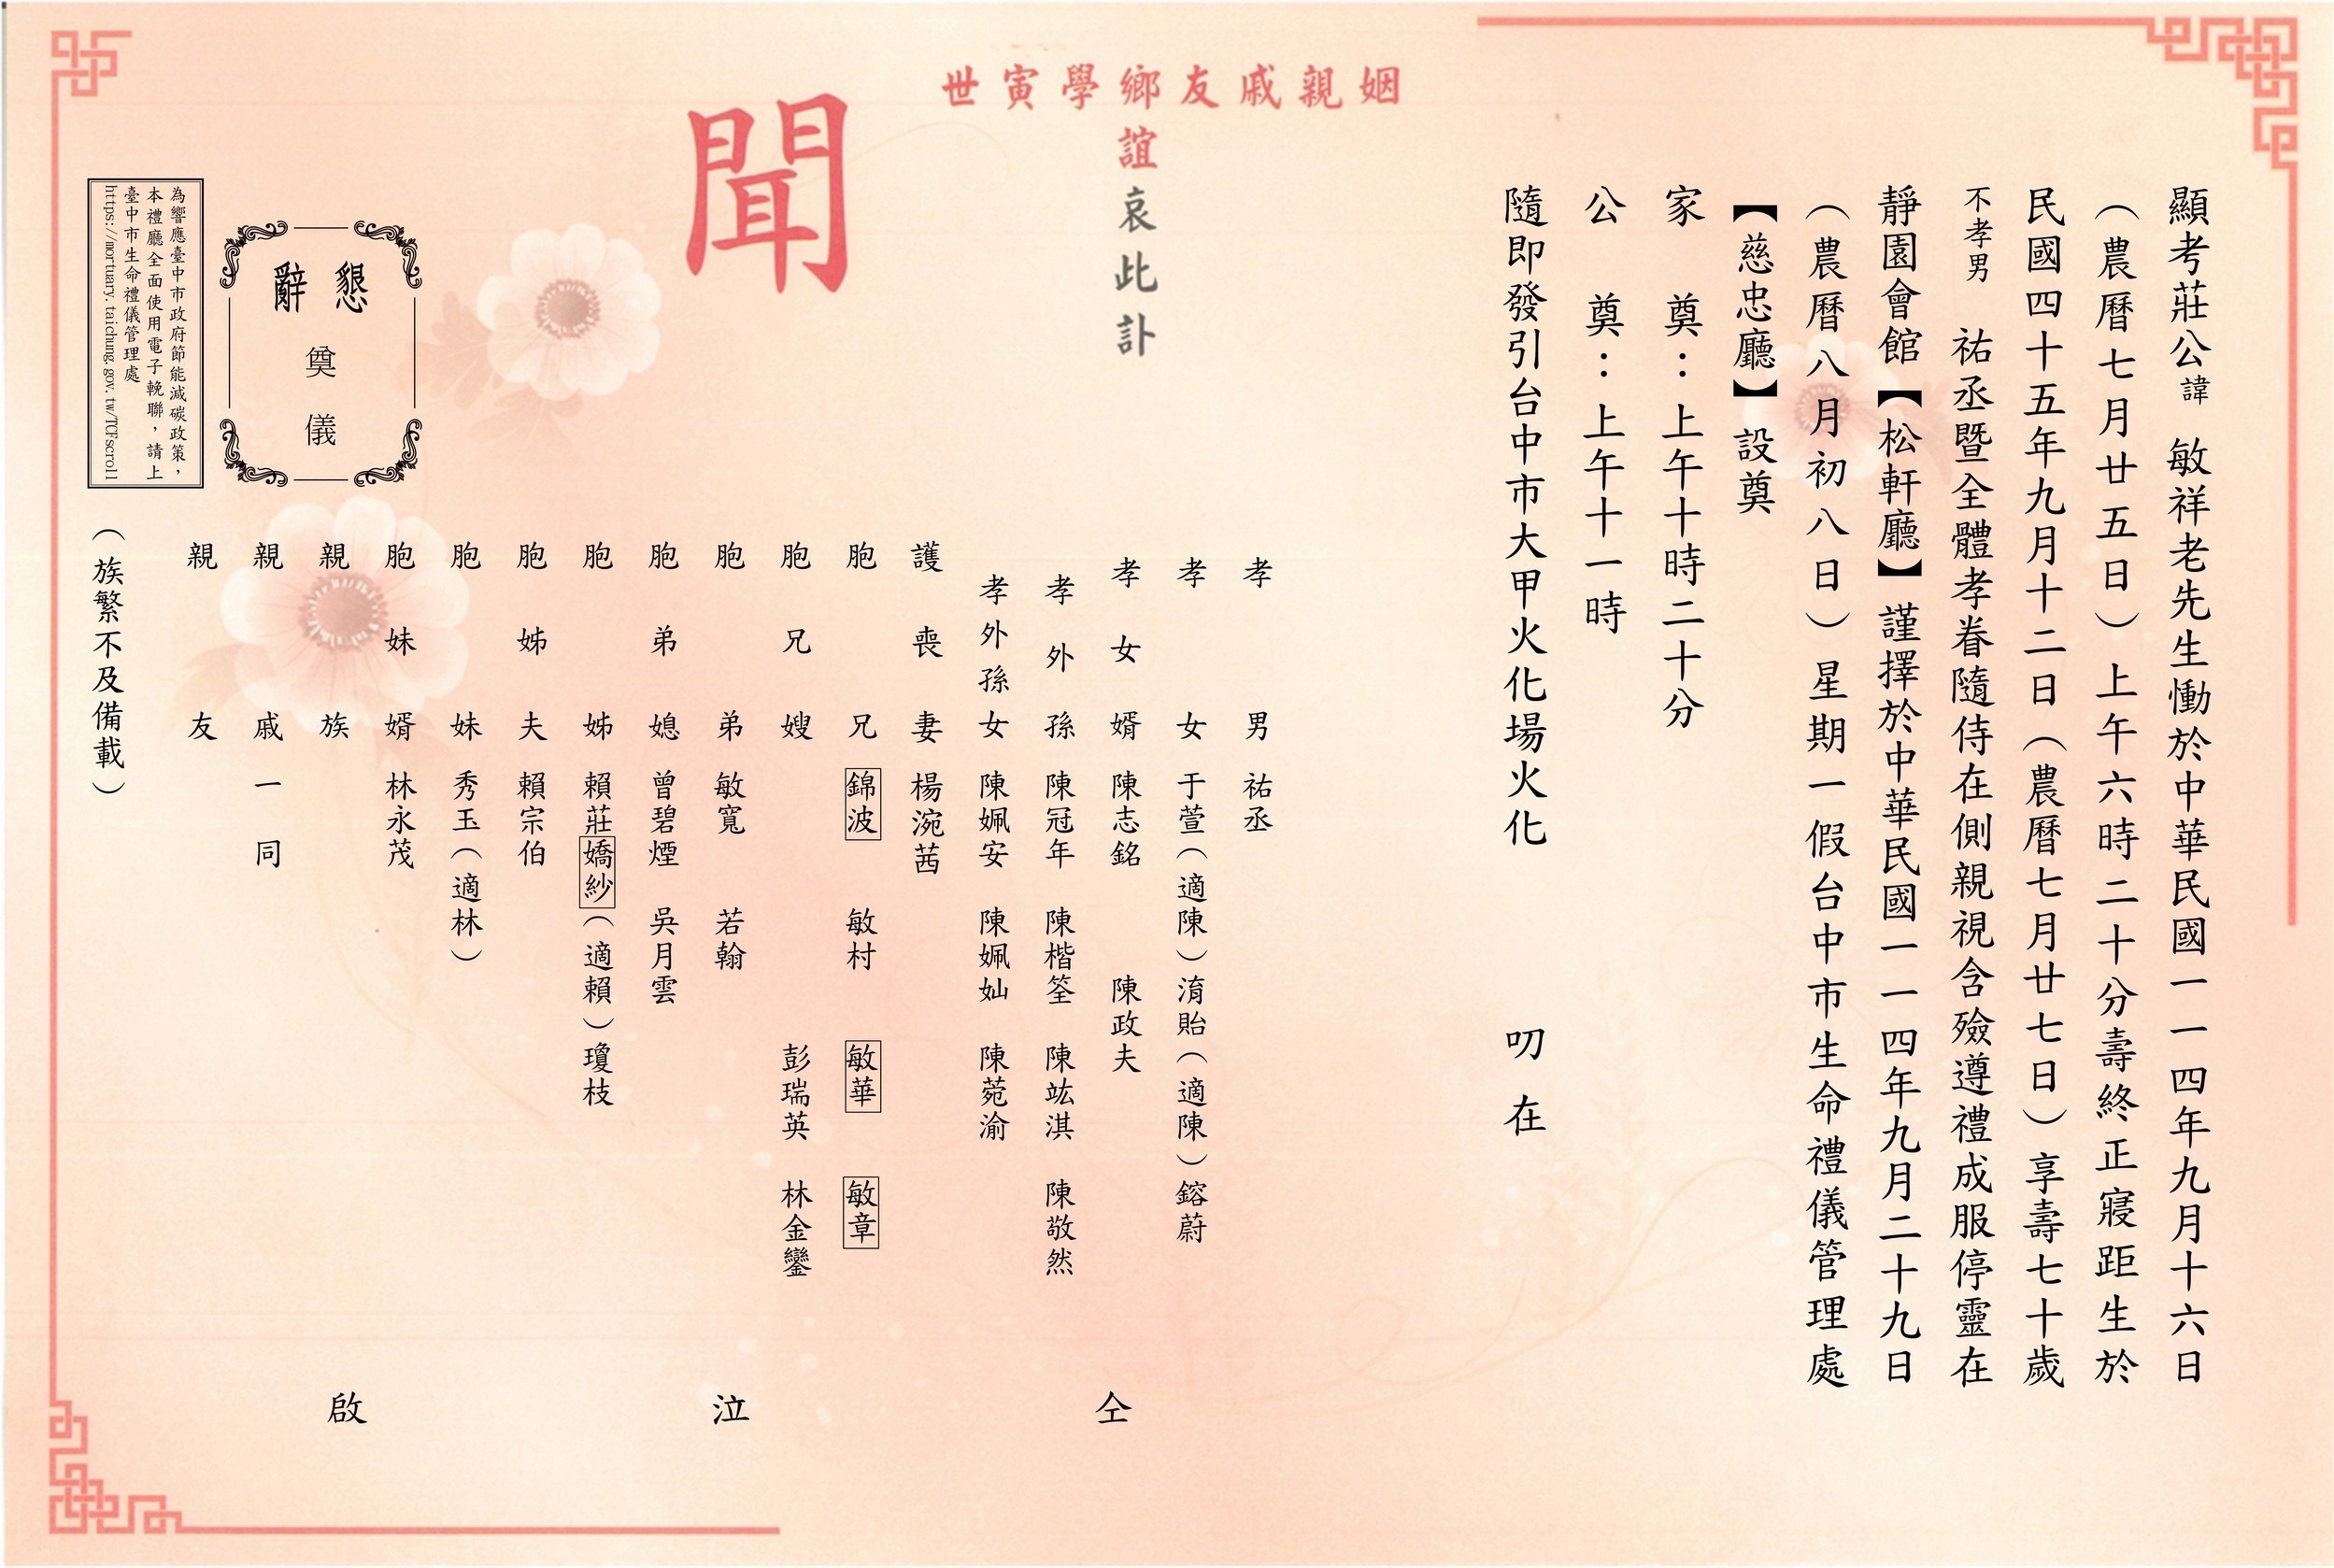 顯考莊公諱 敏祥老先生慟於中華民國一一四年九月十六日
（農曆七月廿五日）上午六時二十分壽終正寢距生於
民國四十五年九月十二日（農曆七月廿七日）享壽七十歲
不孝男 祐丞暨全體孝眷隨侍在側親視含殮遵禮成服停靈在
靜園會館【松軒廳】謹擇於中華民國一一四年九月二十九日
（農曆八月初八日）星期一假台中市生命禮儀管理處
【慈忠廳】設奠
家 奠：上午十時二十分
公 奠：上午十一時
隨即發引台中市大甲火化場火化 叨在
世寅學鄉友戚親姻
誼哀此訃
聞
孝男 祐丞
孝女 于萱（適陳）淯貽（適陳）鎔蔚
孝女婿 陳志銘 陳政夫
孝外孫 陳冠年 陳楷筌 陳竑淇 陳敬然
孝外孫女 陳姵安 陳姵奾 陳菀渝
護喪妻 楊涴茜
胞兄 錦波 敏村 敏華 敏章
胞兄嫂 彭瑞英 林金鑾
胞弟 敏寬 若翰
胞弟媳 曾碧煙 吳月雲
胞姊 賴莊嬌紗（適賴）瓊枝
胞姊夫 賴宗伯
胞妹 秀玉（適林）
胞妹婿 林永茂
親族
親戚一同
親友
仝 泣 啟
（族繁不及備載）
懇辭
奠儀
為響應臺中市政府節能減碳政策，
本禮廳全面使用電子輓聯，請上
臺中市生命禮儀管理處
https://mortuary.taichung.gov.tw/TCFscroll